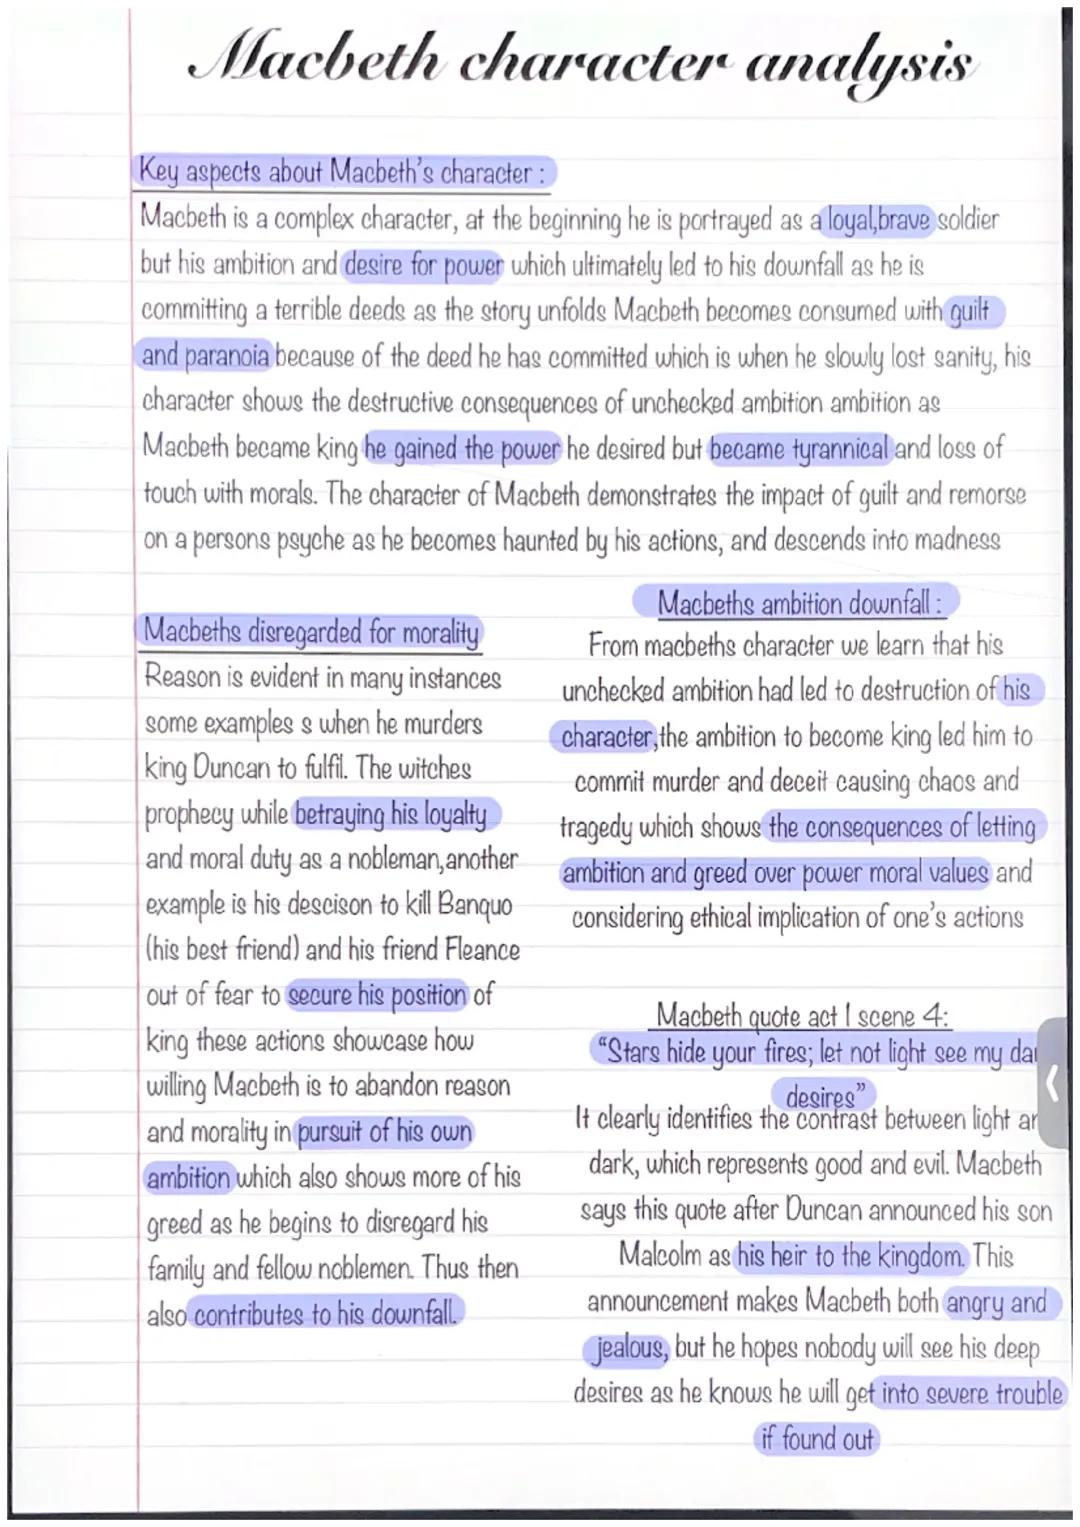 Macbeth character analysis
Key aspects about Macbeth's character :
Macbeth is a complex character, at the beginning he is portrayed as a loyal,brave soldier
but his ambition and desire for power which ultimately led to his downfall as he is
committing a terrible deeds as the story unfolds Macbeth becomes consumed with guilt
and paranoia because of the deed he has committed which is when he slowly lost sanity, his
character shows the destructive consequences of unchecked ambition ambition as
Macbeth became king he gained the power he desired but became tyrannical and loss of
touch with morals. The character of Macbeth demonstrates the impact of guilt and remorse
on a persons psyche as he becomes haunted by his actions, and descends into madness
Macbeths disregarded for morality
Reason is evident in many instances
some examples s when he murders
king Duncan to fulfil. The witches
prophecy while betraying his loyalty
and moral duty as a nobleman,another
example is his descison to kill Banquo
(his best friend) and his friend Fleance
out of fear to secure his position of
king these actions showcase how
willing Macbeth is to abandon reason
and morality in pursuit of his own
ambition which also shows more of his
greed as he begins to disregard his
family and fellow noblemen. Thus then
also contributes to his downfall.
Macbeths ambition downfall :
From macbeths character we learn that his
unchecked ambition had led to destruction of his
character,the ambition to become king led him to
commit murder and deceit causing chaos and
tragedy which shows the consequences of letting
ambition and greed over power moral values and
considering ethical implication of one's actions
Macbeth quote act 1 scene 4:
“Stars hide your fires; let not light see my
desires”
It clearly identifies the contrast between light
dark, which represents good and evil. Macbeth
says this quote after Duncan announced his son
Malcolm as his heir to the kingdom. This
announcement makes Macbeth both angry and
jealous, but he hopes nobody will see his deep
desires as he knows he will get into severe trouble
if found out